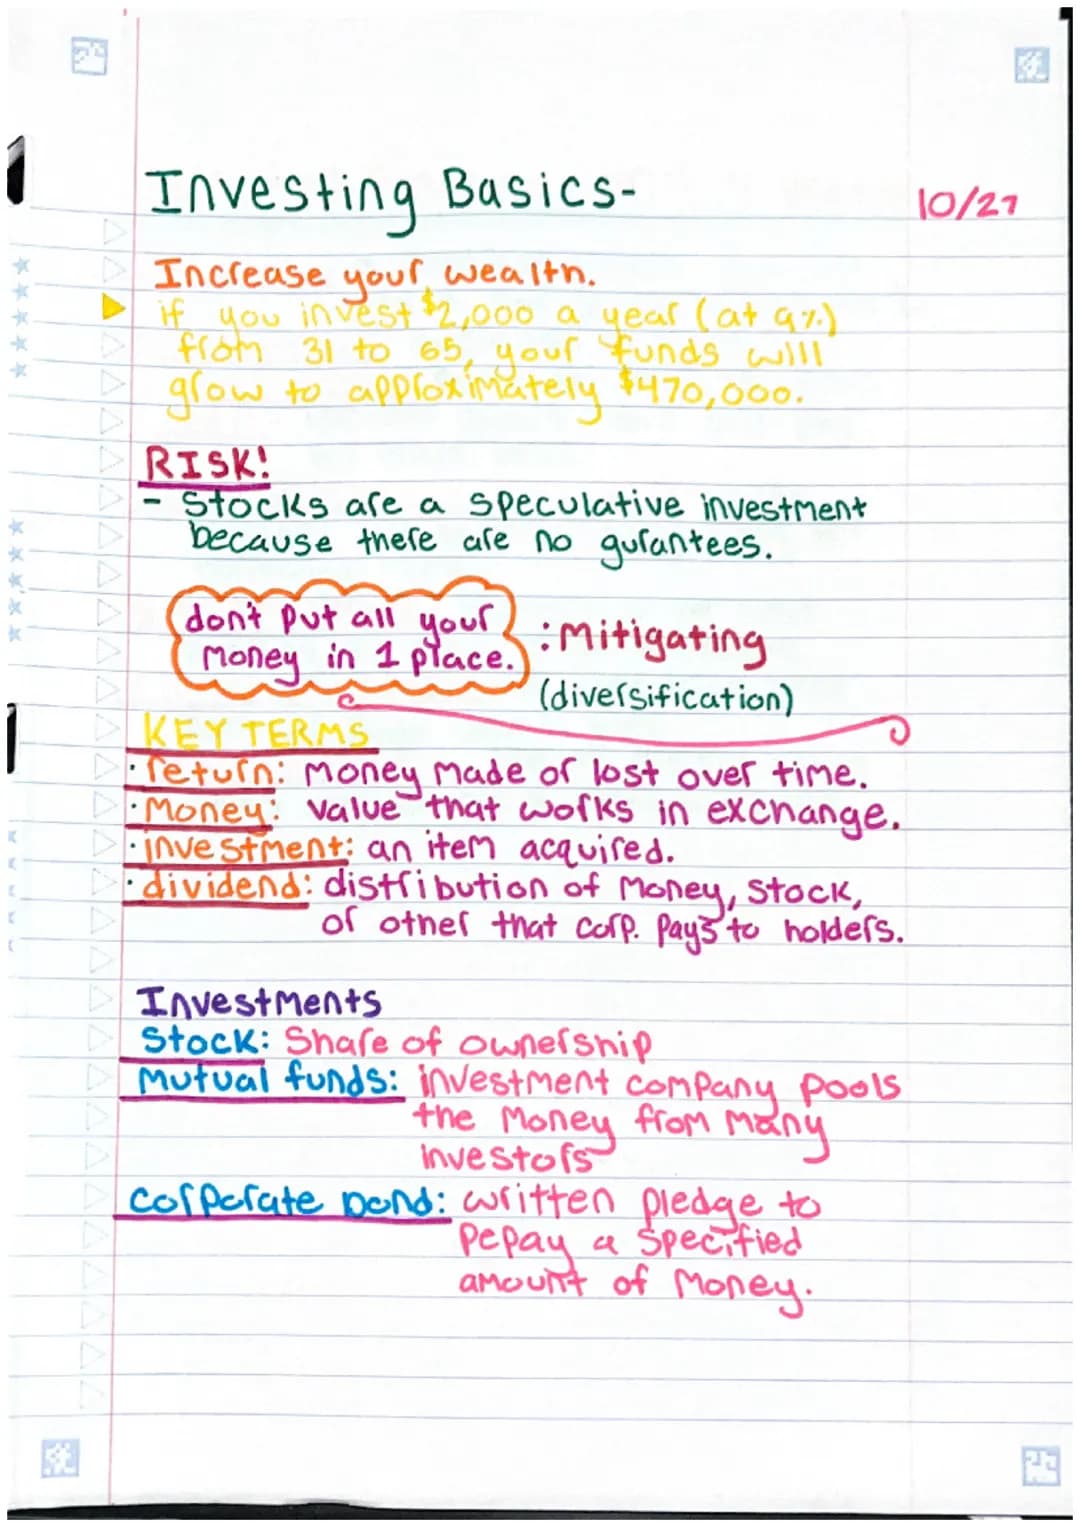 Investing Basics-
10/27
Increase your wealth.
if you invest $2,000 a year (at 9%)
from 31 to 65, your funds will
grow to approximately $470,000.
RISK!
- Stocks are a speculative investment
because there are no gurantees.
don't put all your
money in 1 place.
: Mitigating
(diversification)
KEY TERMS
· return: money made or lost over time.
· Money: value that works in exchange.
· investment: an item acquired.
· dividend: distribution of money, stock,
or other that corp. pays to holders.
Investments
Stock: Share of ownership
Mutual funds: investment company pools
the money from many
investors
corporate bond: written pledge to
pepay a specified
amount of money.